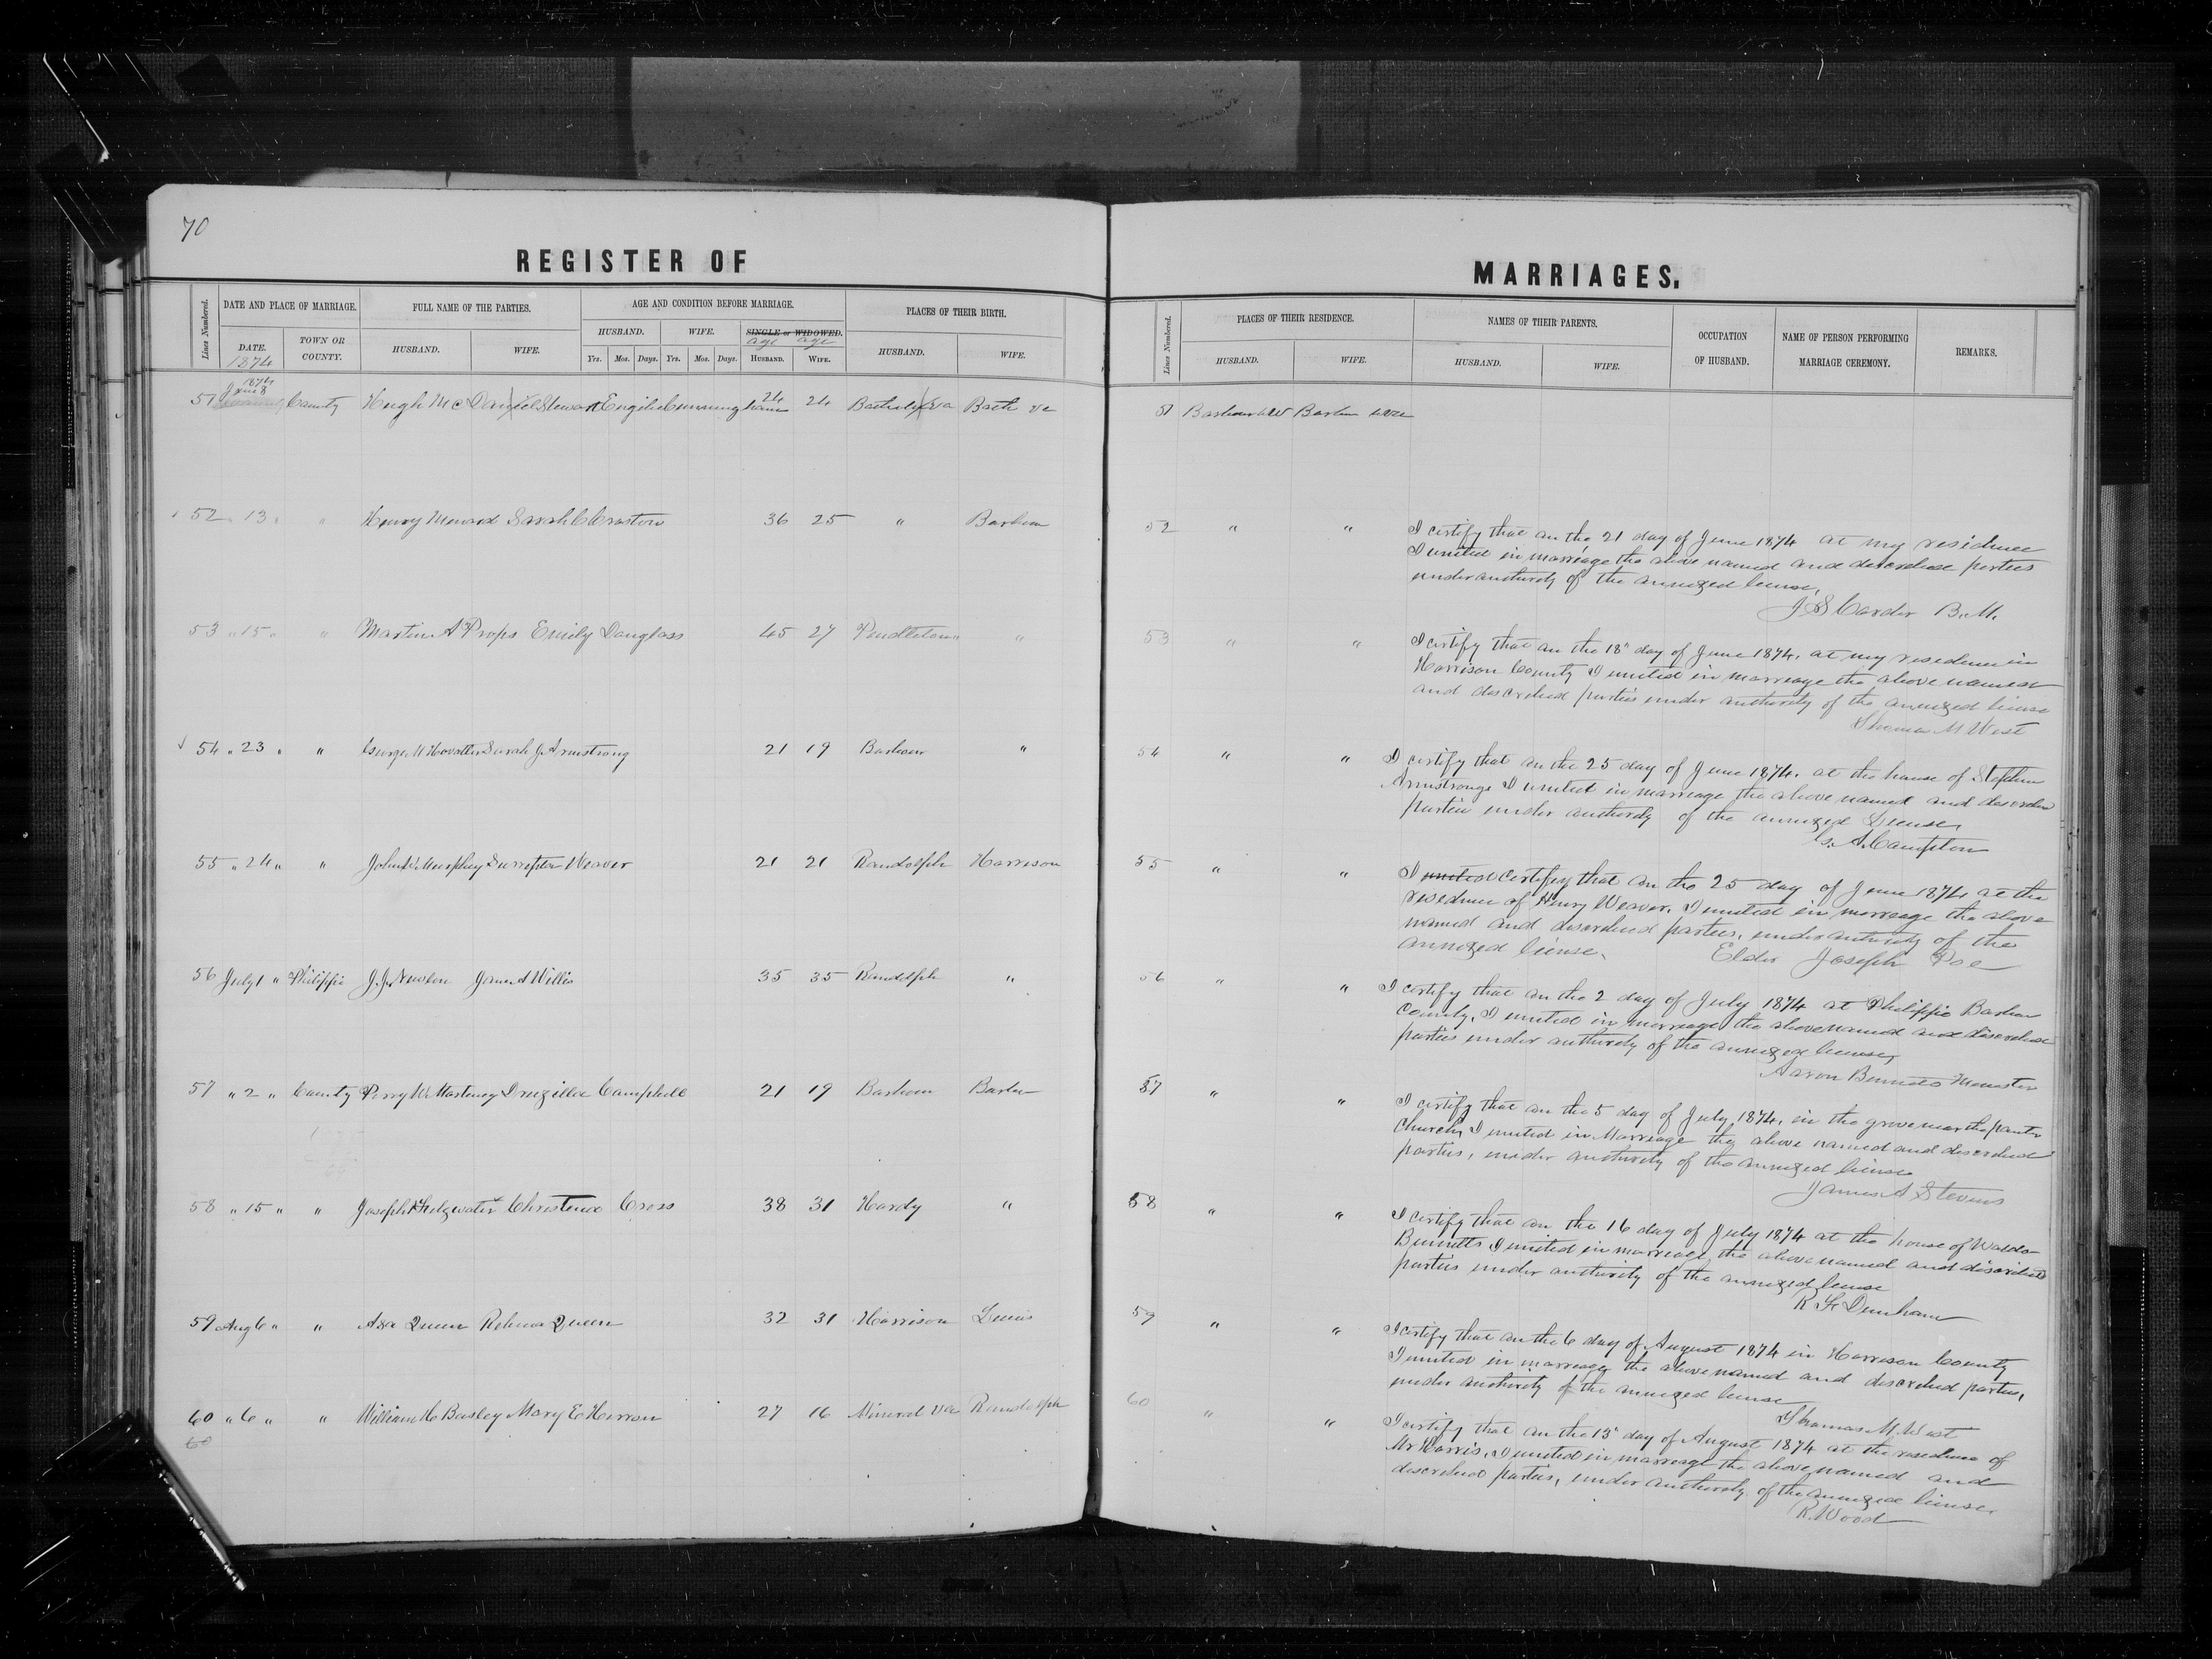 70
REGISTER OF
MARRIAGES.
Lines Numbered.
DATE AND PLACE OF MARRIAGE.
FULL NAME OF THE PARTIES.
AGE AND CONDITION BEFORE MARRIAGE.
PLACES OF THEIR BIRTH.
DATE.
1874
TOWN OR COUNTY.
HUSBAND.
WIFE.
HUSBAND.
WIFE.
SINGLE or WIDOWED.
age age
Yrs. Mos. Days. Yrs. Mos. Days. HUSBAND. WIFE.
HUSBAND.
WIFE.
Lines Numbered.
PLACES OF THEIR RESIDENCE.
NAMES OF THEIR PARENTS.
OCCUPATION OF HUSBAND.
NAME OF PERSON PERFORMING MARRIAGE CEREMONY.
REMARKS.
HUSBAND.
WIFE.
HUSBAND.
WIFE.
1874
51 June 8 County Hugh Mc Daniel Stewart Cunningham 24 24 Bath Va
51 Barbour W Barbour
52 " 13 " " Henry Sarah C 36 25 " Barbour
52 " " I certify that on the 21 day of June 1874 at my residence
I united in marriage the above named and described parties
under authority of the annexed license,
J S Carder B. M.
53 " 15 " " Martin A Props Emily Douglass 45 27 Pendleton " "
53 " " I certify that on the 18" day of June 1874. at my residence in
Harrison County I united in marriage the above named
and described parties under authority of the annexed license
Thomas M West
54 " 23 " " George M Hovatter Sarah J. Armstrong 21 19 Barbour "
54 " " I certify that on the 25 day of June 1874. at the house of Stephen
Armstrongs I united in marriage the above named and described
parties under authority of the annexed License,
A. Compton
55 " 24 " " John W. Murphy Weaver 21 21 Randolph Harrison
55 " " I united certify that on the 25 day of June 1874 at the
residence of Henry Weaver. I united in marriage the above
named and described parties, under authority of the
annexed license. Elder Joseph Poe
56 July 1 " Philippi J. J. Newlon Willis 35 35 Randolph "
56 " " I certify that on the 2 day of July 1874 at Philippi Barbour
County, I united in marriage the above named and described
parties under authority of the annexed license,
Aaron Bennetts
57 " 2 " County Perry W Marteney Druzilla Campbell 21 19 Barbour Barbour
57 " " I certify that on the 5 day of July 1874, in the grove near the
Church, I united in Marriage the above named and described
parties, under authority of the annexed license
James A Stevens
58 " 15 " " Joseph Christena Cross 38 31 Hardy "
58 " " I certify that on the 16 day of July 1874 at the house of
Bennetts I united in marriage the above named and described
parties under authority of the annexed license
R F Dunham
59 Aug 6 " " Asa Queen Rebecca Queen 32 31 Harrison Lewis
59 " " I certify that on the 6 day of August 1874 in Harrison County
I united in marriage the above named and described parties,
under authority of the annexed license
Thomas M. West
60 " 6 " " William H Basley Mary E Herron 27 16 Mineral Va Randolph
60
60 " " I certify that on the 13" day of August 1874 at the residence of
Mr Harris, I united in marriage the above named and
described parties, under authority of the annexed license.
R. Wood